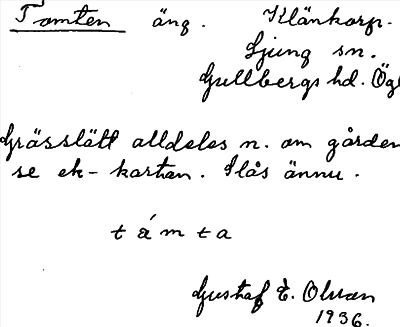 Tomten äng. Klänkorp.
Ljung sn.
Gullbergs hd. Ögl
Grässlätt alldeles n. om gården
se ek-kartan. Slås ännu.
támta
Gustaf E. Olsson
1936.